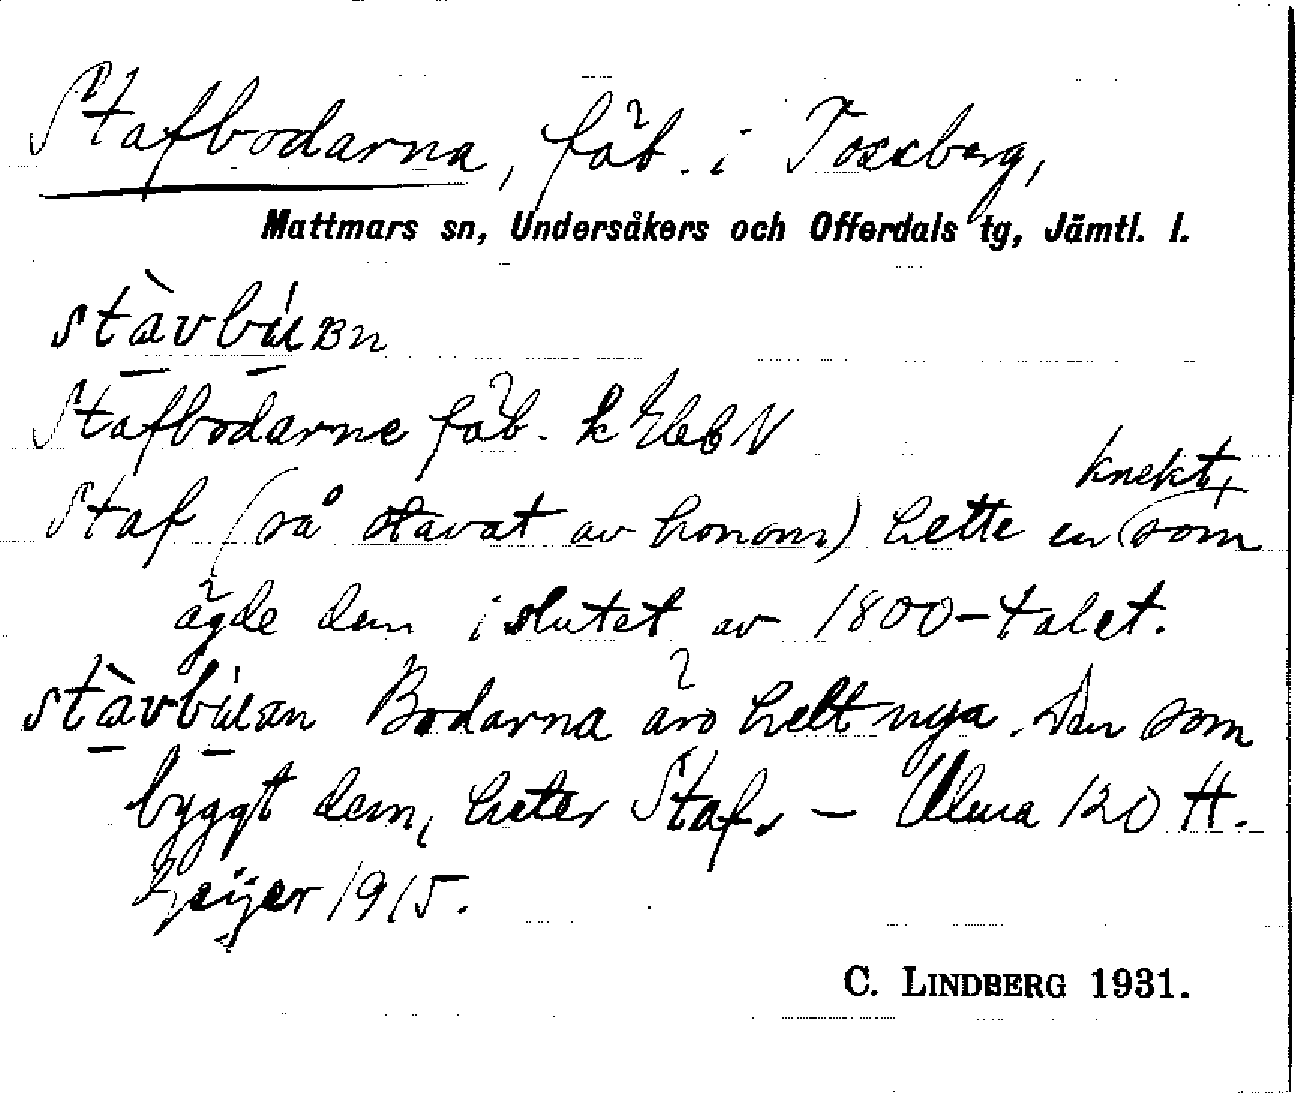 Stafbodarna, fäb. i Tossberg,
Mattmars sn, Undersåkers och Offerdals tg, Jämtl. l.
stàvbúʙn
Stafbodarne fäb. k Eleb N
knekt,
Staf (så stavat av honom) hette en som
ägde dem i slutet av 1800-talet.
stàvbúan Bodarna äro helt nya. Den som
byggt dem, heter Staf. – Ulma 120 H.
Geijer 1915.
C. LINDBERG 1931.